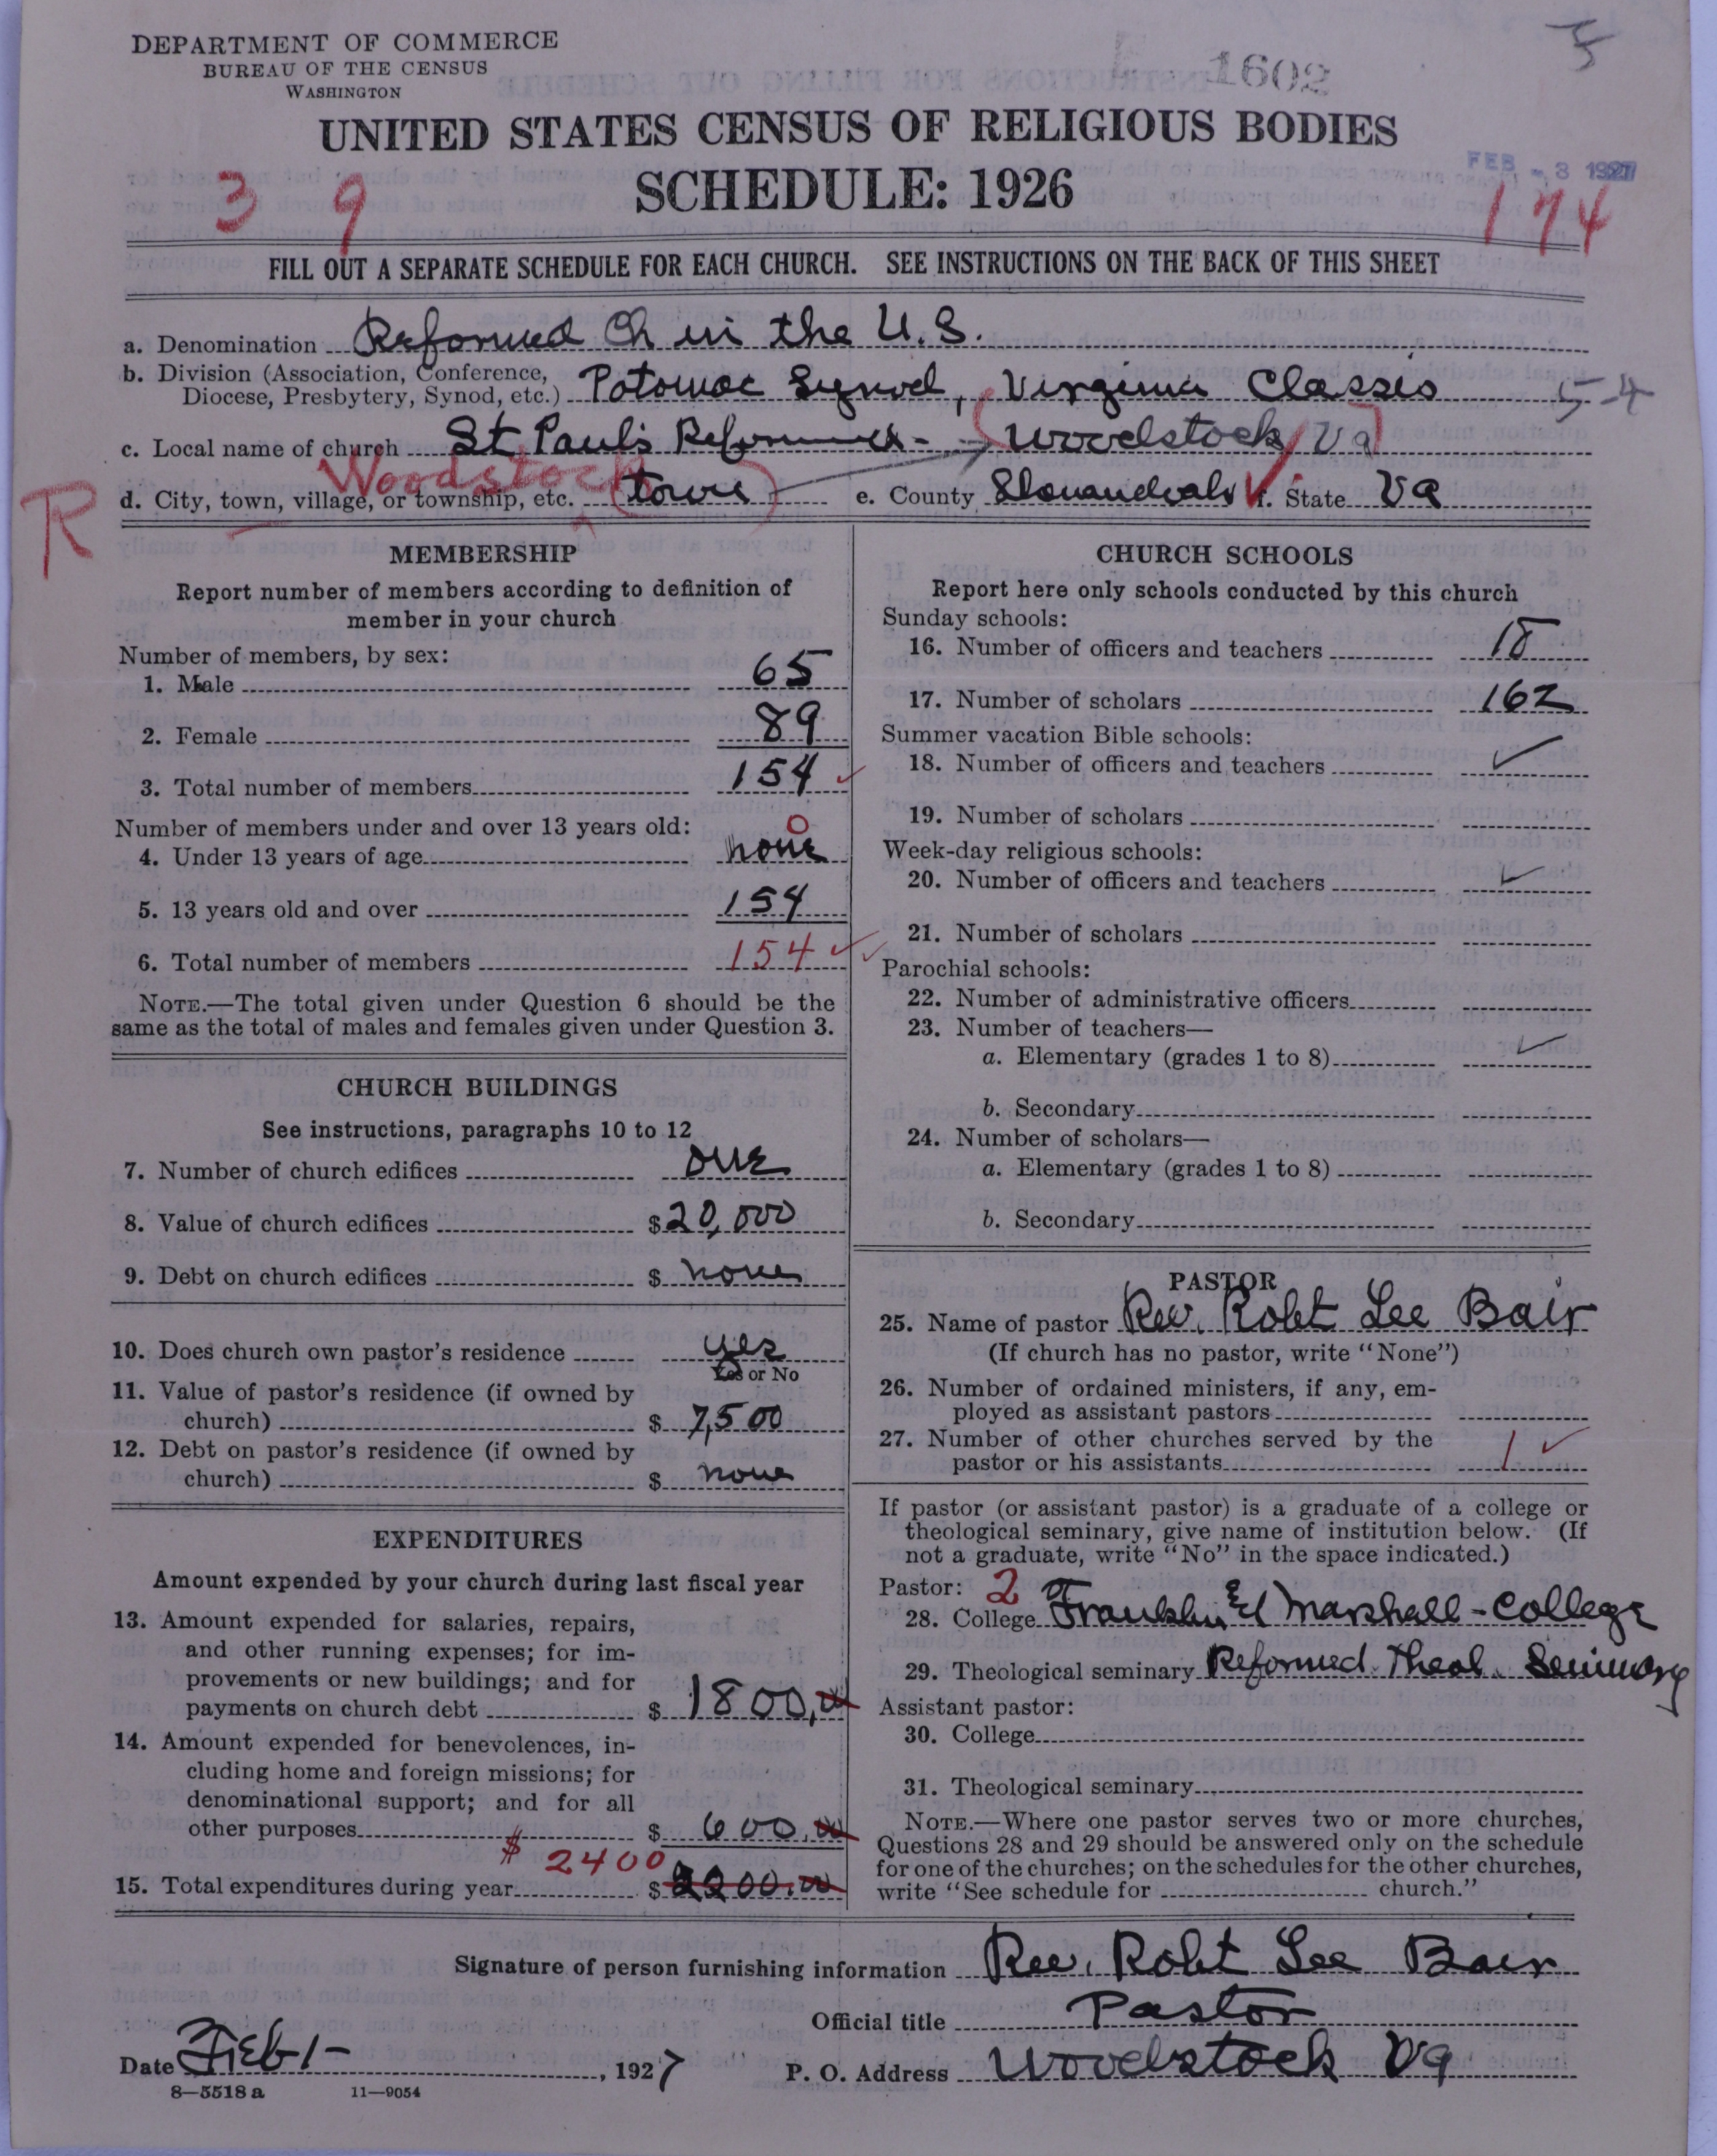 DEPARTMENT OF COMMERCE
BUREAU OF THE CENSUS
WASHINGTON
1602
UNITED STATES CENSUS OF RELIGIOUS BODIES
SCHEDULE: 1926
FEB - 3 1927
3 9
174
FILL OUT A SEPARATE SCHEDULE FOR EACH CHURCH. SEE INSTRUCTIONS ON THE BACK OF THIS SHEET
a. Denomination Reformed Ch in the U.S.
b. Division (Association, Conference, Diocese, Presbytery, Synod, etc.) Potomac Synod, Virginia Classis 5-4
c. Local name of church St Paul's Reformed - Woodstock Va
Woodstock
R
d. City, town, village, or township, etc. (town) e. County Shenandoah f. State Va
MEMBERSHIP
Report number of members according to definition of
member in your church
Number of members, by sex:
1. Male 65
2. Female 89
3. Total number of members 154
Number of members under and over 13 years old: 0
4. Under 13 years of age none
5. 13 years old and over 154
6. Total number of members 154
NOTE.—The total given under Question 6 should be the
same as the total of males and females given under Question 3.
CHURCH BUILDINGS
See instructions, paragraphs 10 to 12
7. Number of church edifices one
8. Value of church edifices $20,000
9. Debt on church edifices $ none
10. Does church own pastor's residence yes
Yes or No
11. Value of pastor's residence (if owned by
church) $ 7,500
12. Debt on pastor's residence (if owned by
church) $ none
EXPENDITURES
Amount expended by your church during last fiscal year
13. Amount expended for salaries, repairs,
and other running expenses; for im-
provements or new buildings; and for
payments on church debt $ 1800.00
14. Amount expended for benevolences, in-
cluding home and foreign missions; for
denominational support; and for all
other purposes $ 600.00
$ 2400
15. Total expenditures during year $ 2200.00
CHURCH SCHOOLS
Report here only schools conducted by this church
Sunday schools:
16. Number of officers and teachers 18
17. Number of scholars 162
Summer vacation Bible schools:
18. Number of officers and teachers
19. Number of scholars
Week-day religious schools:
20. Number of officers and teachers
21. Number of scholars
Parochial schools:
22. Number of administrative officers
23. Number of teachers—
a. Elementary (grades 1 to 8)
b. Secondary
24. Number of scholars—
a. Elementary (grades 1 to 8)
b. Secondary
PASTOR
25. Name of pastor Rev. Robt Lee Bair
(If church has no pastor, write "None")
26. Number of ordained ministers, if any, em-
ployed as assistant pastors
27. Number of other churches served by the
pastor or his assistants 1
If pastor (or assistant pastor) is a graduate of a college or
theological seminary, give name of institution below. (If
not a graduate, write "No" in the space indicated.)
Pastor: 2
28. College Franklin & Marshall - College
29. Theological seminary Reformed Theol. Seminary
Assistant pastor:
30. College
31. Theological seminary
NOTE.—Where one pastor serves two or more churches,
Questions 28 and 29 should be answered only on the schedule
for one of the churches; on the schedules for the other churches,
write "See schedule for church."
Signature of person furnishing information Rev. Robt Lee Bair
Official title Pastor
Date Feb 1 - , 1927 P. O. Address Woodstock Va
8—5518 a 11—9054